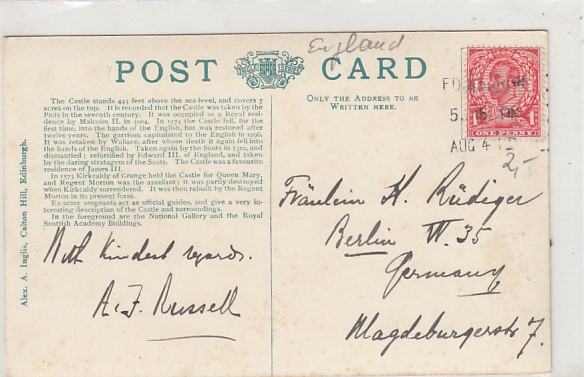 England
POST CARD
ONLY THE ADDRESS TO BE
WRITTEN HERE.
The Castle stands 443 feet above the sea-level, and covers 7
acres on the top. It is recorded that the Castle was taken by the
Picts in the seventh century. It was occupied as a Royal resi-
dence by Malcolm II. in 1004. In 1174 the Castle fell, for the
first time, into the hands of the English, but was restored after
twelve years. The garrison capitulated to the English in 1296.
It was retaken by Wallace, after whose death it again fell into
the hands of the English. Taken again by the Scots in 1312, and
dismantled; refortified by Edward III. of England, and taken
by the daring stratagem of the Scots. The Castle was a favourite
residence of James III.
In 1573 Kirkcaldy of Grange held the Castle for Queen Mary,
and Regent Morton was the assailant; it was partly destroyed
when Kirkcaldy surrendered. It was then rebuilt by the Regent
Morton in its present form.
Ex-army sergeants act as official guides, and give a very in-
teresting description of the Castle and surroundings.
In the foreground are the National Gallery and the Royal
Scottish Academy Buildings.
Alex. A. Inglis, Calton Hill, Edinburgh.
With kindest regards.
A.F. Russell
EDINBURGH
5. 15 PM
AUG 4
ONE PENNY 1
2,-
Fräulein H. Rüdiger
Berlin W. 35
Germany
Magdeburgerstr 7.